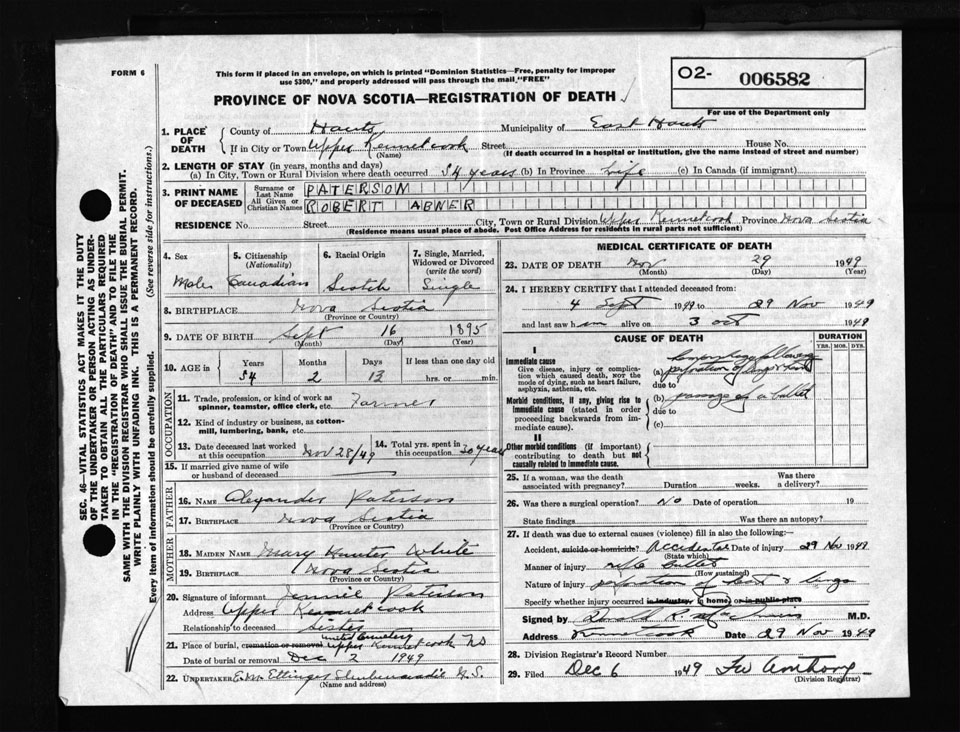 FORM 6
This form if placed in an envelope, on which is printed "Dominion Statistics—Free, penalty for improper
use $300," and properly addressed will pass through the mail "FREE"
O2- 006582
For use of the Department only
PROVINCE OF NOVA SCOTIA—REGISTRATION OF DEATH
1. PLACE OF DEATH
County of Hants Municipality of East Hants
If in City or Town Upper Kennetcook Street House No.
(Name) (If death occurred in a hospital or institution, give the name instead of street and number)
2. LENGTH OF STAY (in years, months and days)
(a) In City, Town or Rural Division where death occurred 54 years (b) In Province life (c) In Canada (if immigrant)
3. PRINT NAME OF DECEASED
Surname or Last Name PATERSON
All Given or Christian Names ROBERT ABNER
RESIDENCE No. Street City, Town or Rural Division Upper Kennetcook Province Nova Scotia
(Residence means usual place of abode. Post Office Address for residents in rural parts not sufficient)
SEC. 46—VITAL STATISTICS ACT MAKES IT THE DUTY
OF THE UNDERTAKER OR PERSON ACTING AS UNDER-
TAKER TO OBTAIN ALL THE PARTICULARS REQUIRED
IN THE "REGISTRATION OF DEATH" AND TO FILE THE
SAME WITH THE DIVISION REGISTRAR WHO SHALL ISSUE THE BURIAL PERMIT.
WRITE PLAINLY WITH UNFADING INK. THIS IS A PERMANENT RECORD.
Every item of information should be carefully supplied. (See reverse side for instructions.)
4. Sex 5. Citizenship (Nationality) 6. Racial Origin 7. Single, Married, Widowed or Divorced (write the word)
Male Canadian Scotch Single
8. BIRTHPLACE Nova Scotia
(Province or Country)
9. DATE OF BIRTH Sept 16 1895
(Month) (Day) (Year)
10. AGE in Years Months Days If less than one day old
54 2 13 hrs. or min.
OCCUPATION
11. Trade, profession, or kind of work as
spinner, teamster, office clerk, etc. Farmer
12. Kind of industry or business, as cotton-
mill, lumbering, bank, etc.
13. Date deceased last worked at this occupation Nov 28/49
14. Total yrs. spent in this occupation 30 years
15. If married give name of wife
or husband of deceased
FATHER
16. NAME Alexander Paterson
17. BIRTHPLACE Nova Scotia
(Province or Country)
MOTHER
18. MAIDEN NAME Mary Hunter White
19. BIRTHPLACE Nova Scotia
(Province or Country)
20. Signature of informant Jennie Paterson
Address Upper Kennetcook
Relationship to deceased Sister
United Cemetery
21. Place of burial, cremation or removal Upper Kennetcook NS
Date of burial or removal Dec 2 1949
22. UNDERTAKER E.M. Ettinger Shubenacadie N.S.
(Name and address)
MEDICAL CERTIFICATE OF DEATH
23. DATE OF DEATH Nov 29 1949
(Month) (Day) (Year)
24. I HEREBY CERTIFY that I attended deceased from:
4 Sept 1949 to 29 Nov 1949
and last saw him alive on 3 Oct 1949
CAUSE OF DEATH DURATION
YRS. MOS. DYS.
I
Immediate cause
Give disease, injury or complica-
tion which caused death, NOT the
mode of dying, such as heart failure,
asphyxia, asthenia, etc.
(a) following
perforation of lungs & heart
due to
Morbid conditions, if any, giving rise to
immediate cause (stated in order
proceeding backwards from im-
mediate cause).
(b) passage of a bullet
due to
(c)
II
Other morbid conditions (if important)
contributing to death but not
causally related to immediate cause.
25. If a woman, was the death associated with pregnancy? Duration weeks. Was there a delivery?
26. Was there a surgical operation? No Date of operation 19
State findings Was there an autopsy?
27. If death was due to external causes (violence) fill in also the following:—
Accident, suicide or homicide? Accidental Date of injury 29 Nov 1949
(State which)
Manner of injury rifle bullet
(How sustained)
Nature of injury perforation of heart & lungs
Specify whether injury occurred in industry, in home, or in public place
Signed by M.D.
Address Kennetcook Date 29 Nov 1949
28. Division Registrar's Record Number
29. Filed Dec 6 1949 FW Anthony
(Division Registrar)